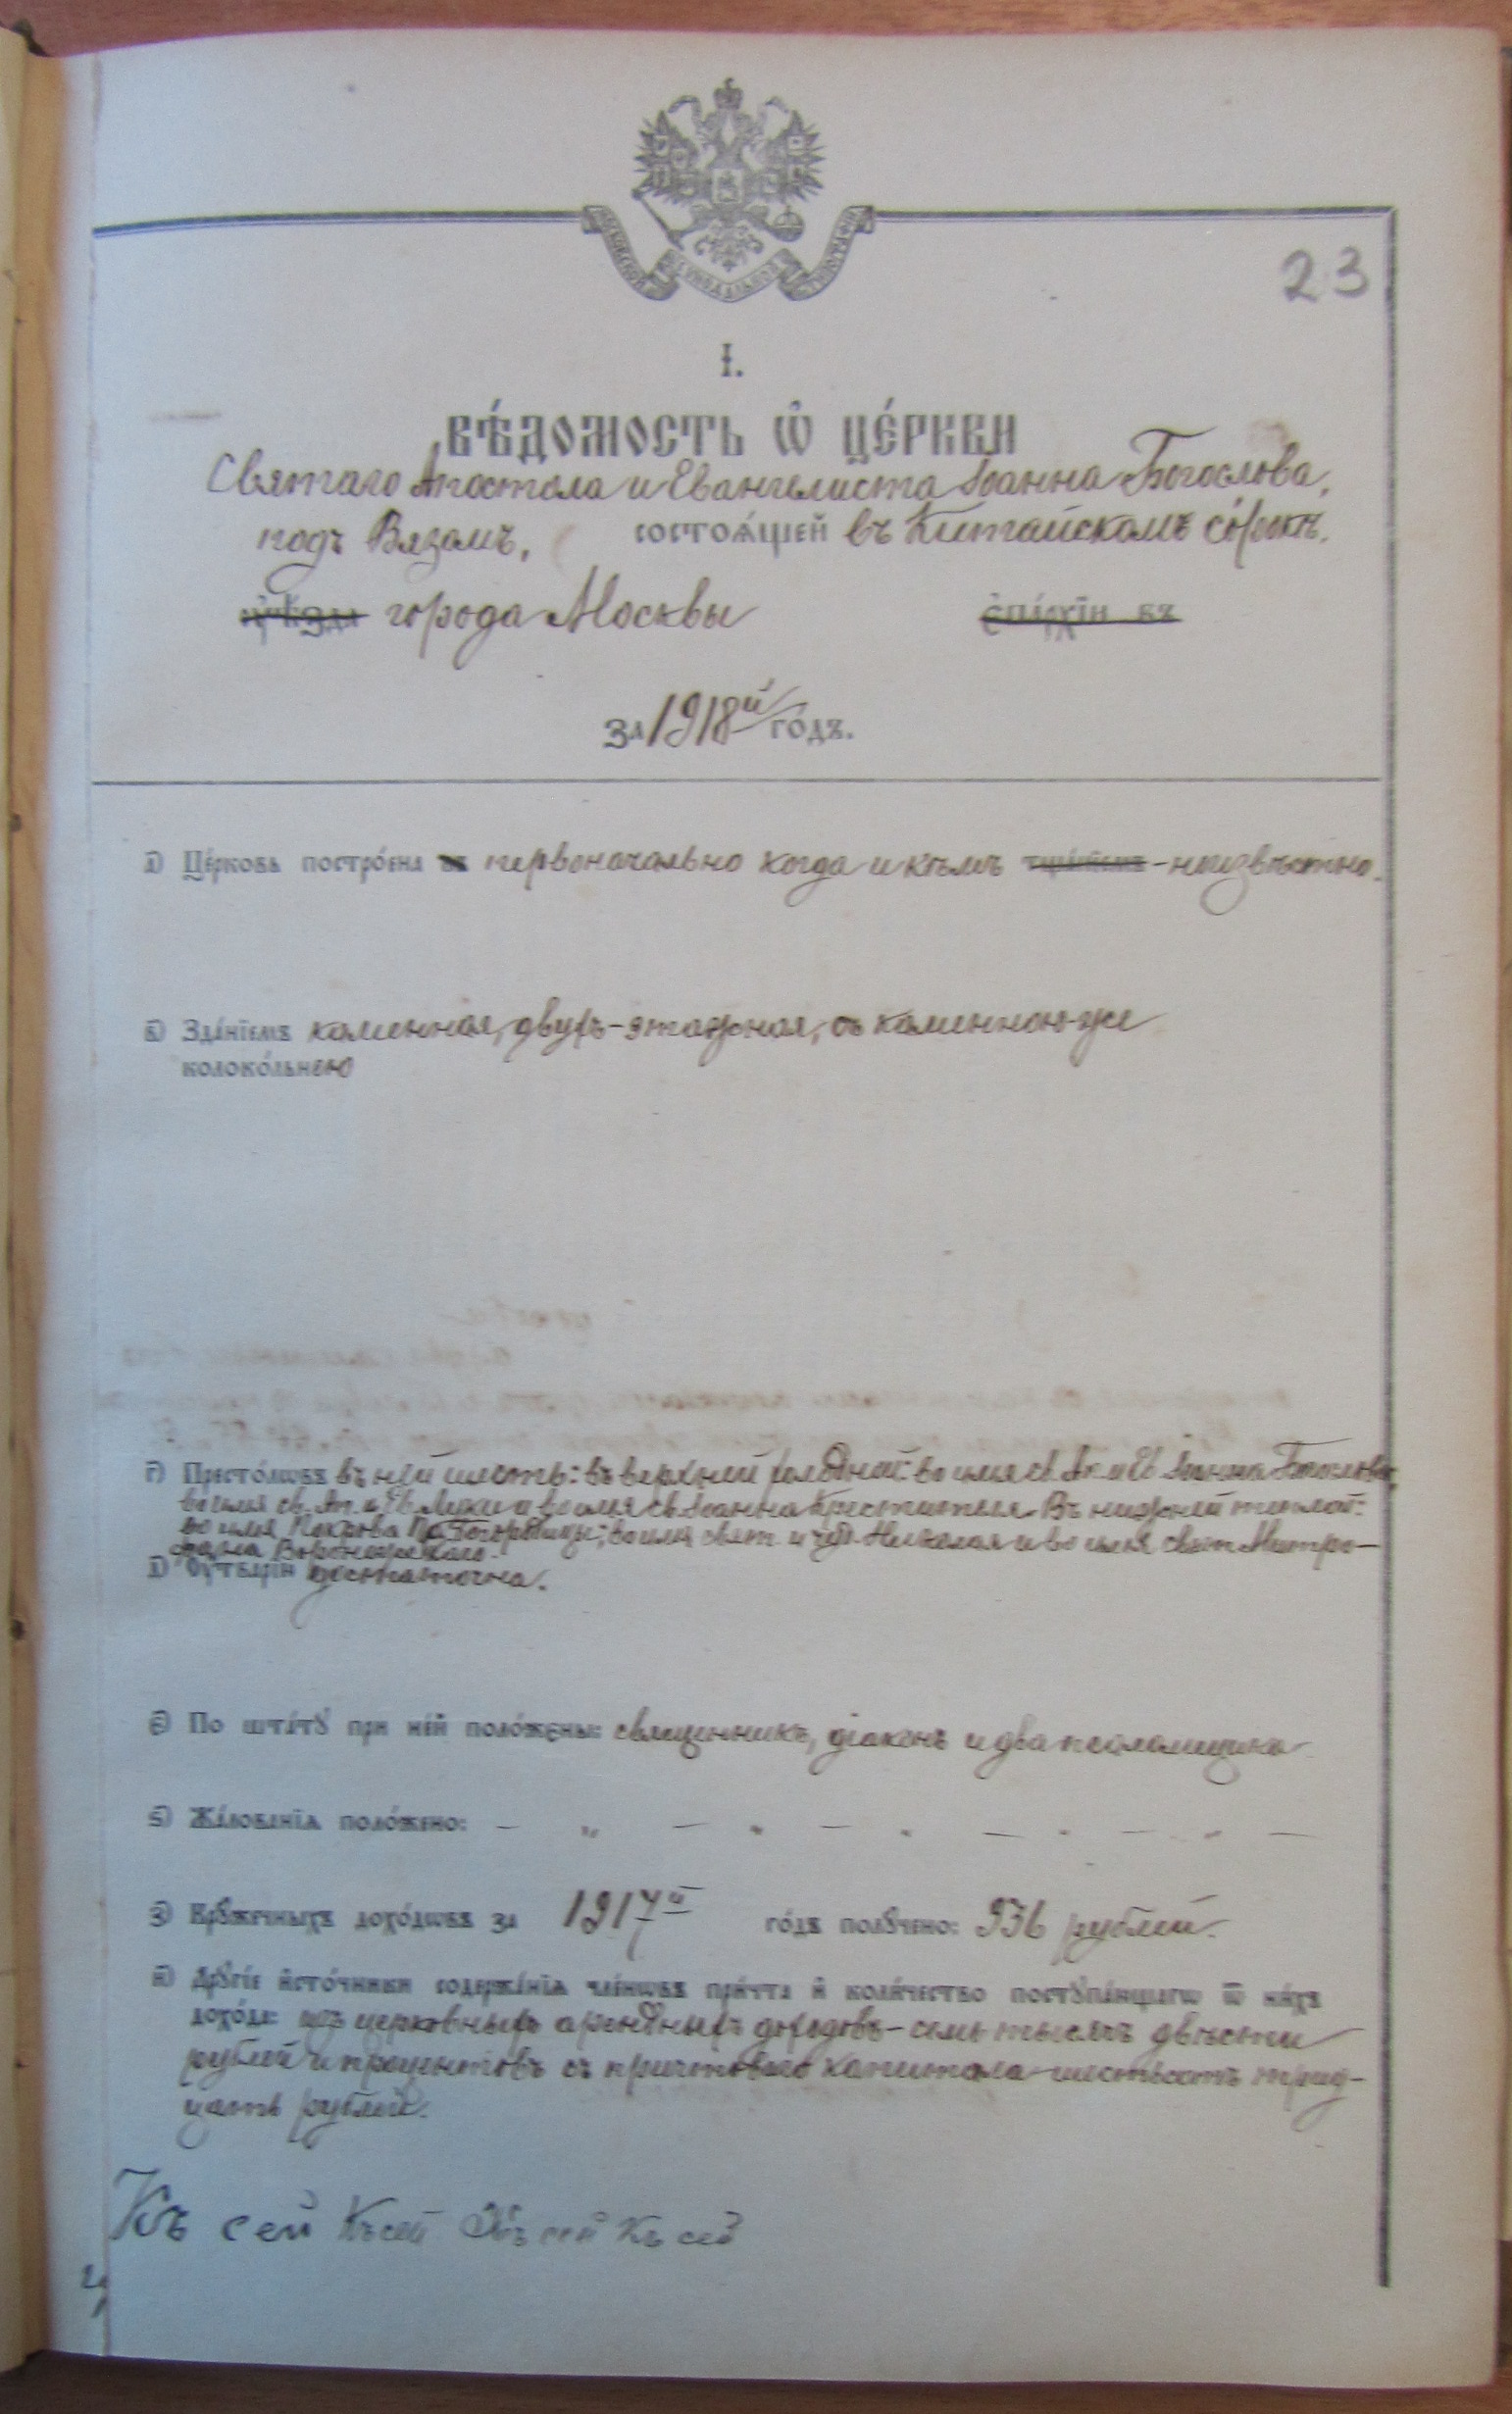 МОСКОВСКОЙ СѴНОДАЛЬНОЙ ТИПОГРАФІИ
23
І.
ВѢ́ДОМОСТЬ Ѽ ЦЕ́РКВИ
Святаго Апостола и Евангелиста Іоанна Богослова,
подъ Вязомъ, состоѧ́щей въ Китайскомъ со́рокѣ.
ᲂуѣ́зда города Москвы є҆па́рхїи въ
За 1918й го́дъ.
а҃) Це́рковь постро́ена въ первоначально когда и кѣмъ тща́нїемъ - неизвѣстно.
в҃) Зда́нїемъ каменная, двухъ-этажная, съ каменною-же
колоко́льнею
г҃) Престо́лѡвъ въ ней шесть: въ верхней холодной: во имя св. Ап. и Ев. Іоанна Богослова,
во имя св. Ап. и Ев. Луки и во имя св. Іоанна Крестителя. Въ нижней теплой:
во имя Покрова Пр. Богородицы; во имя свят. и чуд. Николая и во имя свят. Митро-
фана Воронежскаго.
д҃) Оу҆́твари достаточна.
є҃) По шта́тꙋ при не́й поло́жены: священникъ, діаконъ и два псаломщика
ѕ҃) Жа́лованїѧ поло́жено: — " — " — " — " — " —
з҃) Крꙋ́жечныхъ дохо́дѡвъ за 1917й го́дъ полꙋ́чено: 936 рублей.
и҃) Дрꙋгі́е и҆сто́чники содержа́нїѧ чле́нѡвъ при́чта и҆ коли́чество постꙋпа́ющагѡ ѿ ни́хъ
дохо́да: изъ церковныхъ арендныхъ доходовъ - семь тысячъ двѣсти
рублей и процентовъ съ причтоваго капитала шестьсотъ трид-
цать рублей.
Къ сей Къ сей Къ сей Къ сей